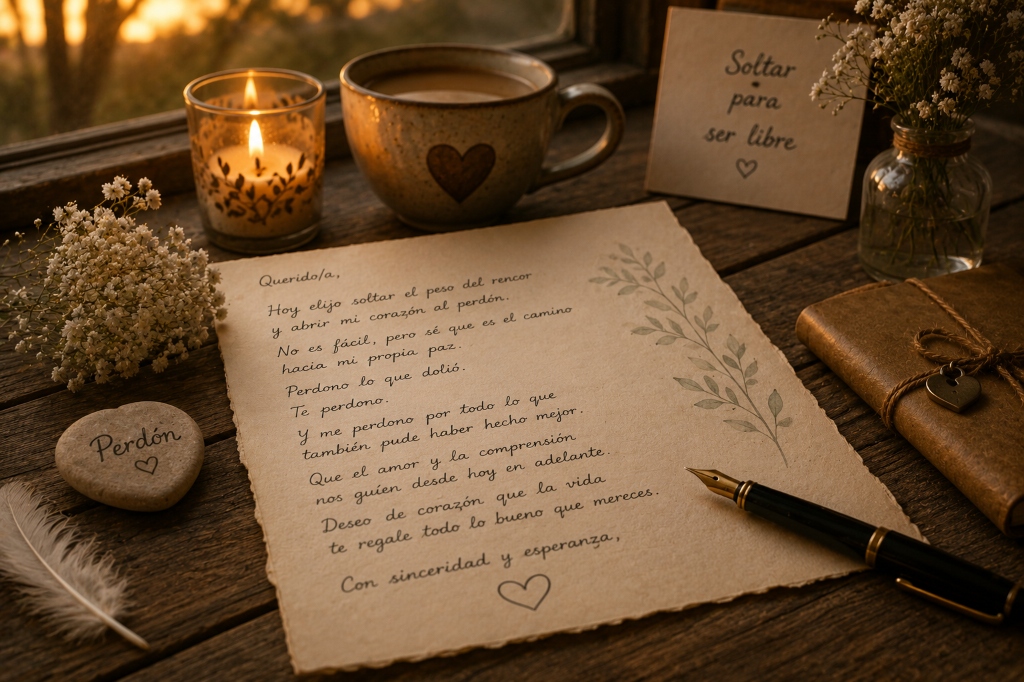 Soltar
para
ser libre
Querido/a,
Hoy elijo soltar el peso del rencor
y abrir mi corazón al perdón.
No es fácil, pero sé que es el camino
hacia mi propia paz.
Perdono lo que dolió.
Te perdono.
Y me perdono por todo lo que
también pude haber hecho mejor.
Que el amor y la comprensión
nos guíen desde hoy en adelante.
Deseo de corazón que la vida
te regale todo lo bueno que mereces.
Con sinceridad y esperanza,
Perdón